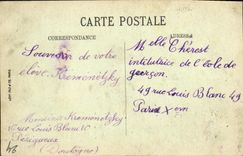 CARTE POSTALE
CORRESPONDANCE
ADRESSE
Souvenir de votre
élève Kromonotzky
Monsieur Kromonotzky
rue Louis Blanc 10
Périgueux
(Dordogne)
Melle Thérest
institutrice de l'École de
garçon.
49 rue Louis Blanc 49
Paris Xem